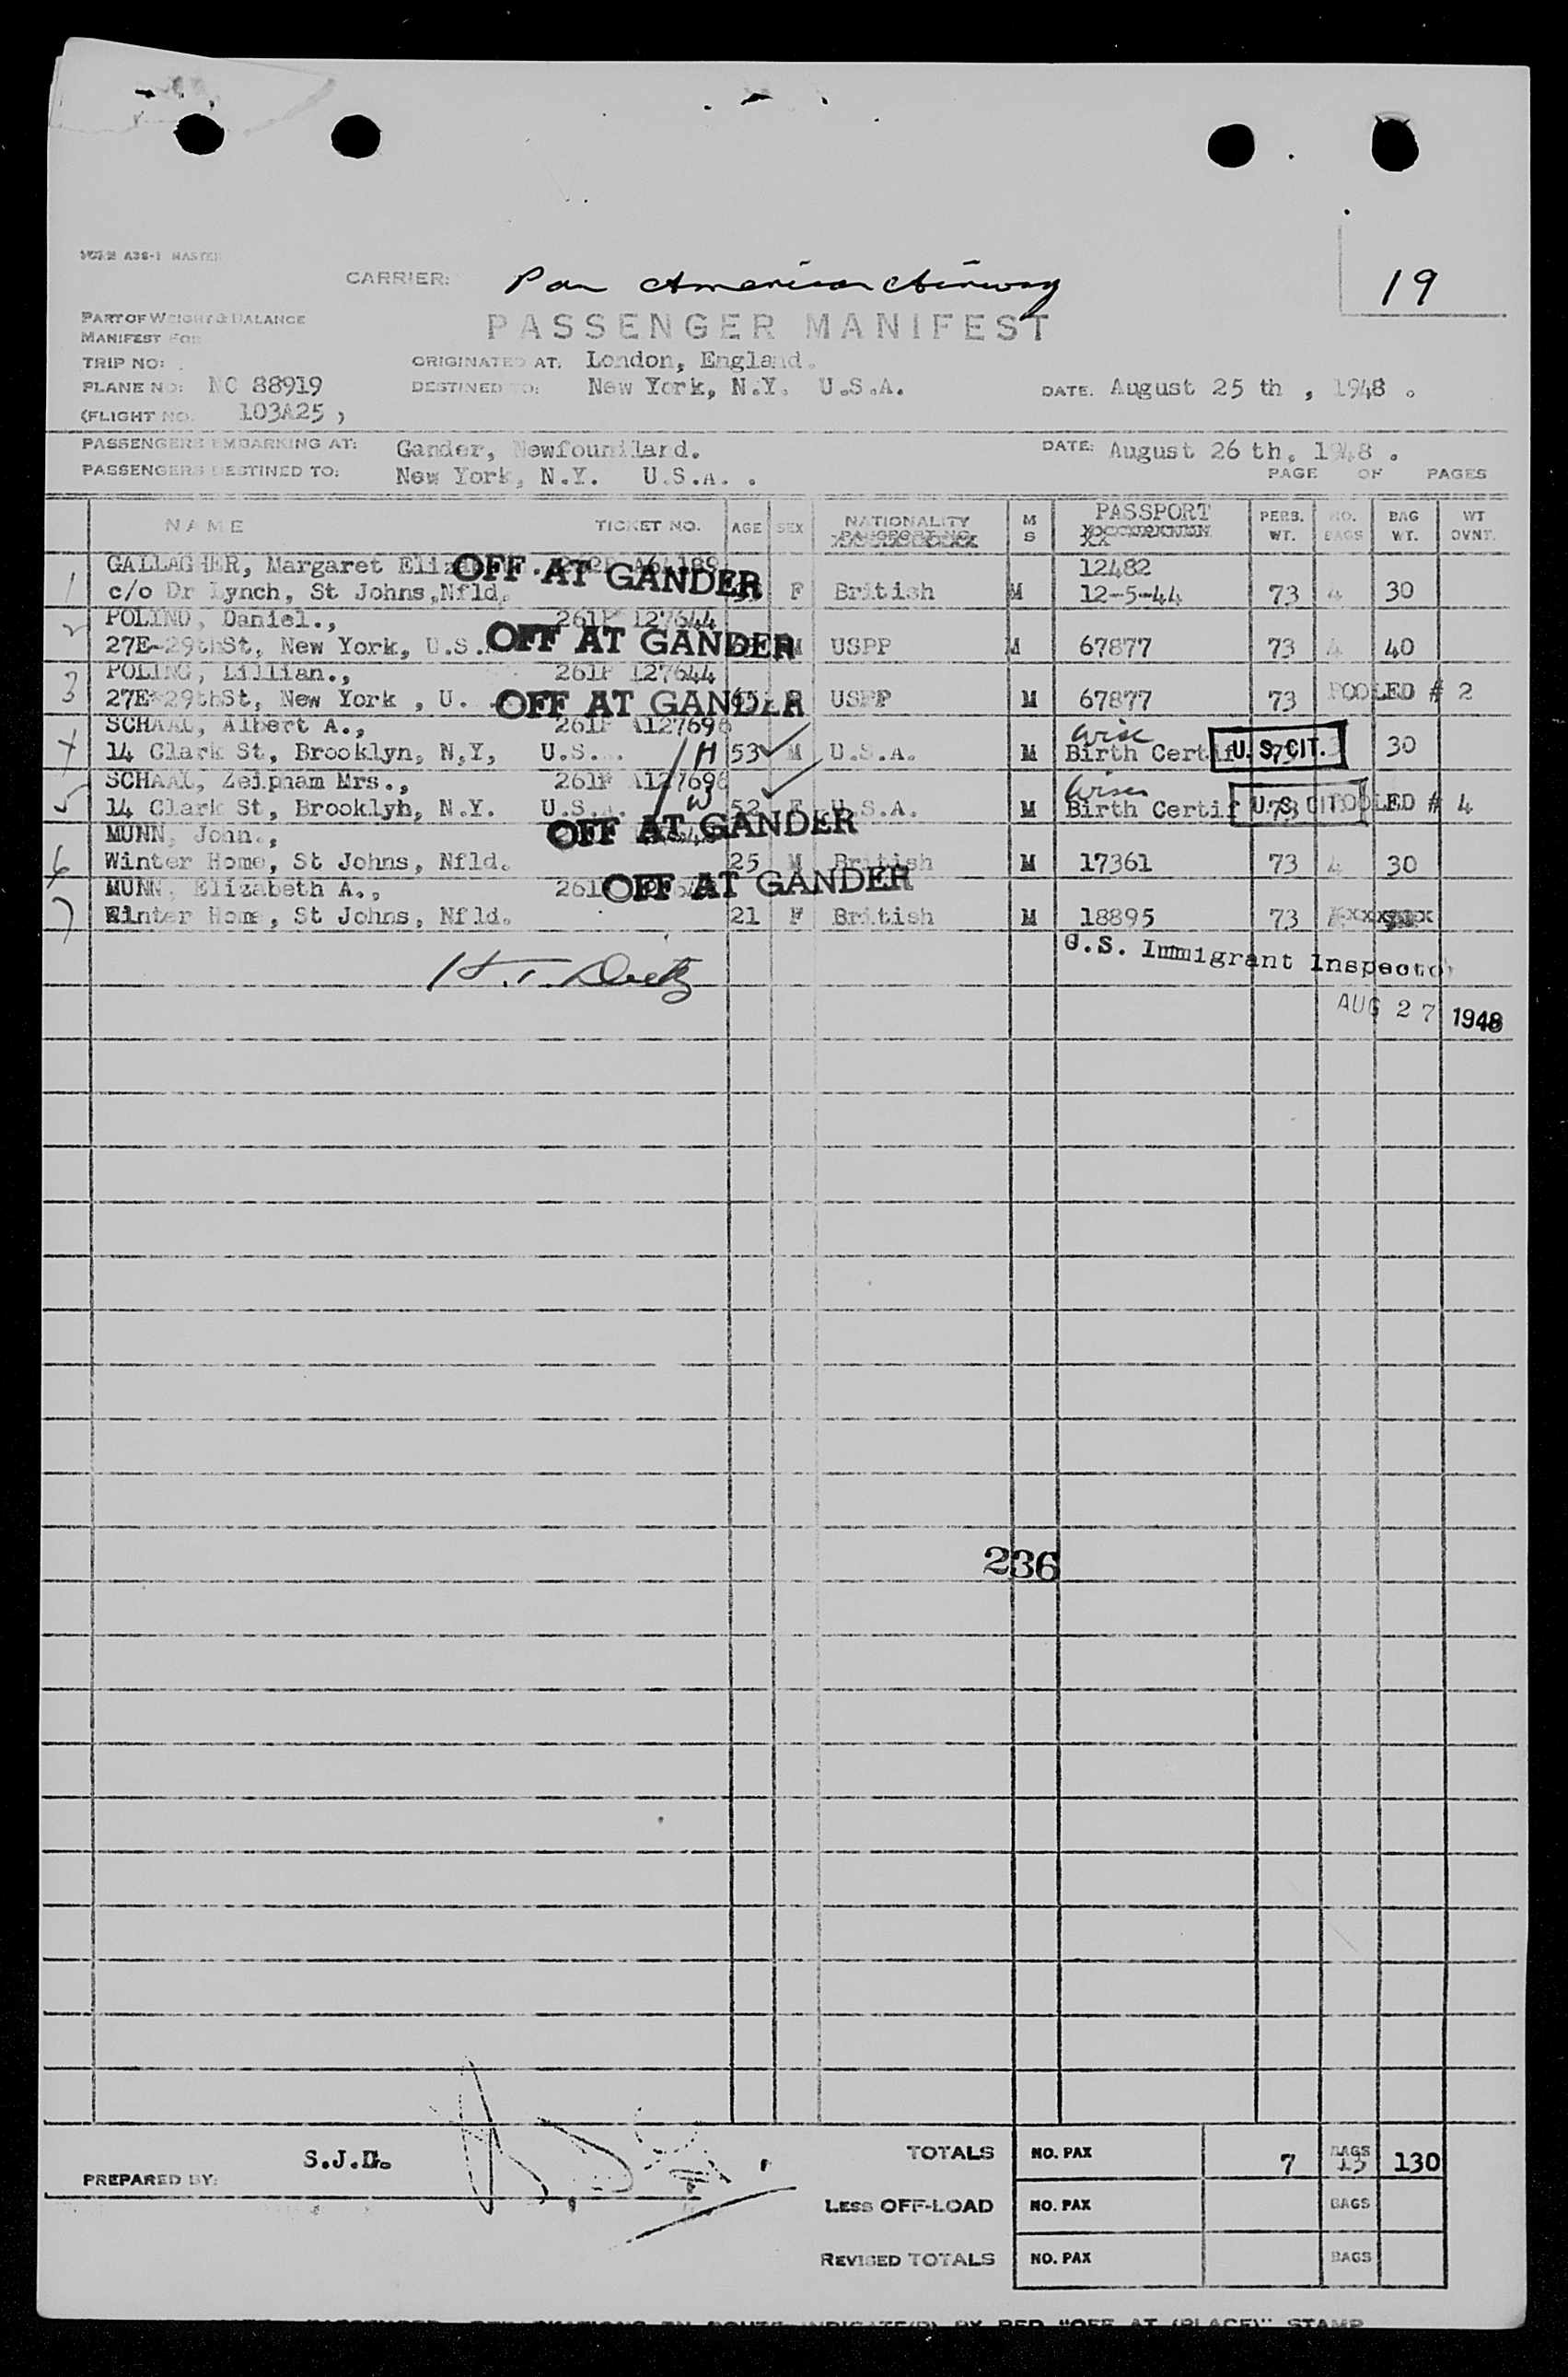 FORM A38-1 MASTER
CARRIER: Pan American Airway
19
PART OF WEIGHT & BALANCE
MANIFEST FOR
PASSENGER MANIFEST
TRIP NO: ORIGINATED AT. London, England.
PLANE NO: NC 88919 DESTINED TO: New York, N.Y. U.S.A. DATE. August 25 th , 1948 .
(FLIGHT NO. 103A25 )
PASSENGERS EMBARKING AT: Gander, Newfoundland. DATE: August 26 th, 1948 .
PASSENGERS DESTINED TO: New York, N.Y. U.S.A. . PAGE OF PAGES
NAME TICKET NO. AGE SEX NATIONALITY M S PASSPORT PERS. WT. NO. BAGS BAG WT. WT OVNT.
1 GALLAGHER, Margaret OFF AT GANDER 12482
c/o Dr Lynch, St Johns, Nfld. F British M 12-5-44 73 4 30
2 POLING, Daniel., 261P 127644
27E-29thSt, New York, U.S. OFF AT GANDER M USPP M 67877 73 4 40
3 POLING, Lillian., 261P 127644
27E-29thSt, New York , U. OFF AT GANDER USPP M 67877 73 POOLED # 2
4 SCHAAL, Albert A., 261P A127698
14 Clark St, Brooklyn, N,Y, U.S. H 53 M U.S.A. M Birth Certif U.S. CIT. 73 3 30
5 SCHAAL, Zeipham Mrs., 261P A127698
14 Clark St, Brooklyh, N.Y. U.S. W 52 F U.S.A. M Birth Certif U.S. CIT. 73 POOLED # 4
6 MUNN, John., OFF AT GANDER
Winter Home, St Johns, Nfld. 25 M British M 17361 73 4 30
7 MUNN, Elizabeth A., 261P OFF AT GANDER
Winter Home, St Johns, Nfld. 21 F British M 18895 73
U.S. Immigrant Inspector
AUG 27 1948
236
PREPARED BY: S.J.D.
TOTALS NO. PAX 7 BAGS 15 130
LESS OFF-LOAD NO. PAX BAGS
REVISED TOTALS NO. PAX BAGS